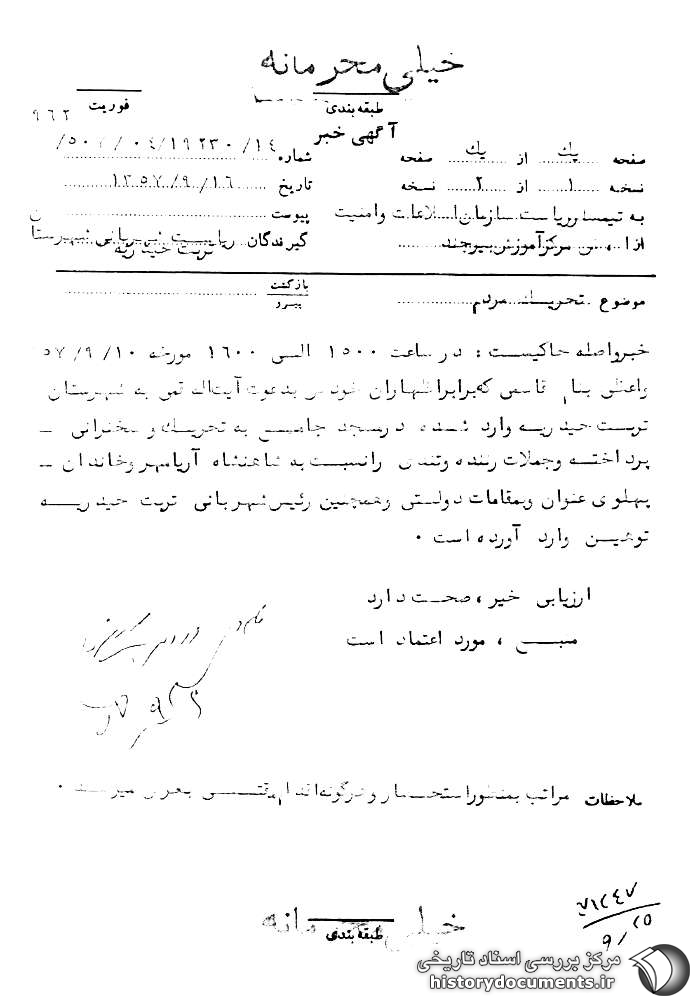 خیلی محرمانه
طبقه بندی
فوریت
۹۶۲
آگهی خبر
صفحه یک از یک صفحه
شماره ۵۰۱/۰۴/۱۹۲۳۰/۱۴/
نسخه ۱ از ۲ نسخه
تاریخ ۱۳۵۷/۹/۱۶
به تیمسار ریاست سازمان اطلاعات و امنیت
پیوست
از مرکز آموزش بیرجند
گیرندگان ریاست شهربانی شهرستان
تربت حیدریه
موضوع تحریک مردم
بازگشت
پیرو
خبر واصله حاکیست : در ساعت ۱۵۰۰ الی ۱۶۰۰ مورخه ۵۷/۹/۱۰
واعظی بنام قاسمی که برابر اظهاران خودش بدعوت آیت‌اله قمی به شهرستان
تربت حیدریه وارد شده در مسجد جامع به تحریک و سخنرانی –
پرداخته و جملات زننده و تندی را نسبت به شاهنشاه آریامهر و خاندان –
پهلوی عنوان و بمقامات دولتی و همچنین رئیس شهربانی تربت حیدریه
توهین وارد آورده است ۰
ارزیابی خبر ، صحت دارد
منبع ، مورد اعتماد است
ملاحظات مراتب بمنظور استحضار و هرگونه اقدام مقتضی بعرض میرسد ۰
خیلی محرمانه
طبقه بندی
مرکز بررسی اسناد تاریخی
historydocuments.ir